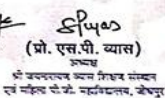 (प्रो. एस.पी. व्यास)
अध्यक्ष
श्री जयनारायण व्यास शिक्षण संस्थान
एवं महिला पी.जी. महाविद्यालय, जोधपुर